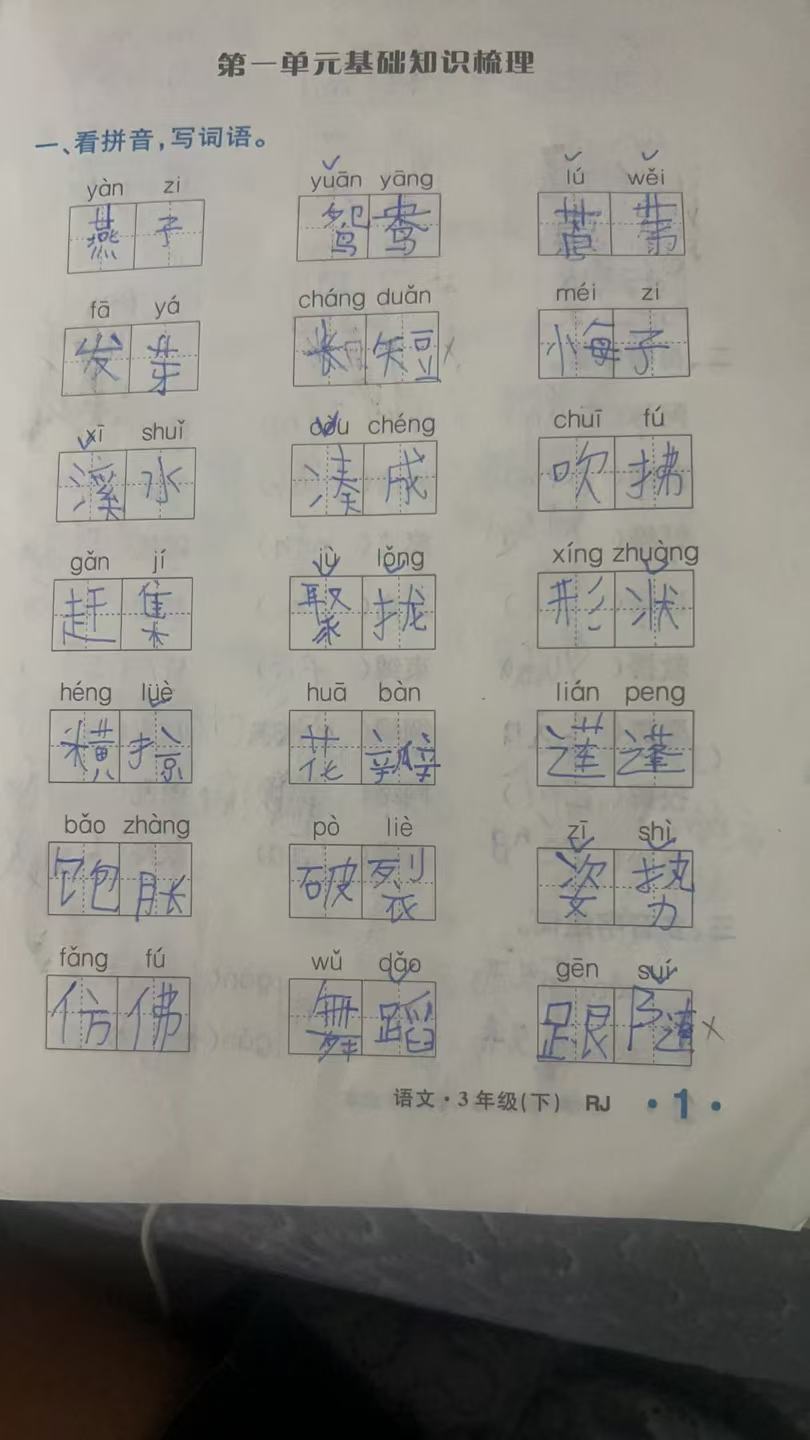 第一单元基础知识梳理
一、看拼音,写词语。
yàn zi yuān yāng lú wěi
燕子 鸳鸯 芦苇
fā yá cháng duǎn méi zi
发芽 长短 梅子
xī shuǐ còu chéng chuī fú
溪水 凑成 吹拂
gǎn jí jù lǒng xíng zhuàng
赶集 聚拢 形状
héng lüè huā bàn lián peng
横掠 花瓣 莲蓬
bǎo zhàng pò liè zī shì
饱胀 破裂 姿势
fǎng fú wǔ dǎo gēn suí
仿佛 舞蹈 跟随
语文·3年级(下) RJ ·1·